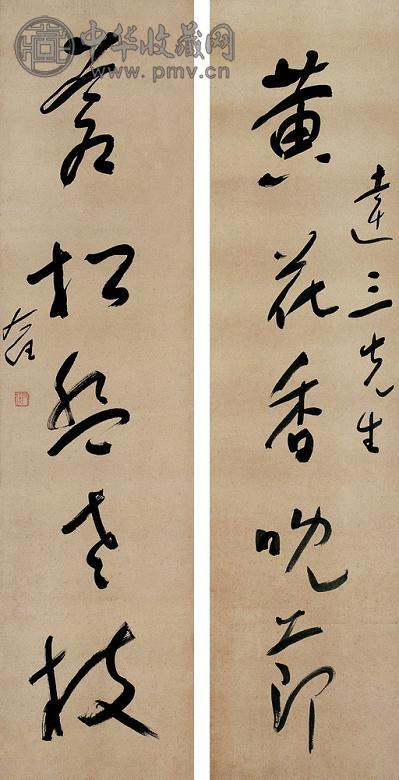 中华收藏网
www.pmv.cn
達三先生
黄花香晚節
蒼松老枝
右任